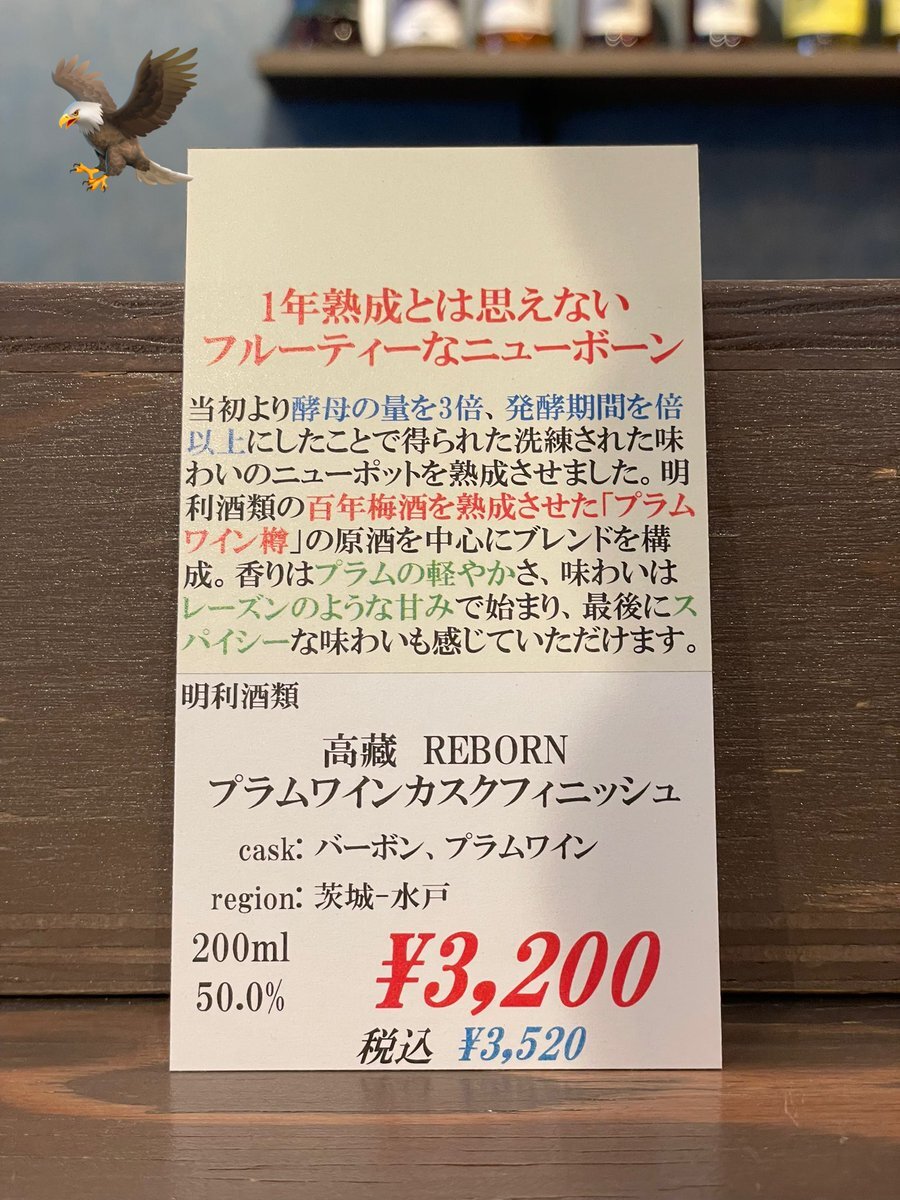 1年熟成とは思えない
フルーティーなニューボーン
当初より酵母の量を3倍、発酵期間を倍
以上にしたことで得られた洗練された味
わいのニューポットを熟成させました。明
利酒類の百年梅酒を熟成させた「プラム
ワイン樽」の原酒を中心にブレンドを構
成。香りはプラムの軽やかさ、味わいは
レーズンのような甘みで始まり、最後にス
パイシーな味わいも感じていただけます。
明利酒類
高藏 REBORN
プラムワインカスクフィニッシュ
cask: バーボン、プラムワイン
region: 茨城-水戸
200ml
50.0%
¥3,200
税込 ¥3,520